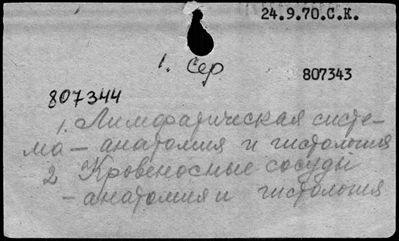 24.9.70.С.К.
1. Сер
807343
807344
1. Лимфатическая систе-
ма – анатомия и гистология
2 Кровеносные сосуды
– анатомия и гистология